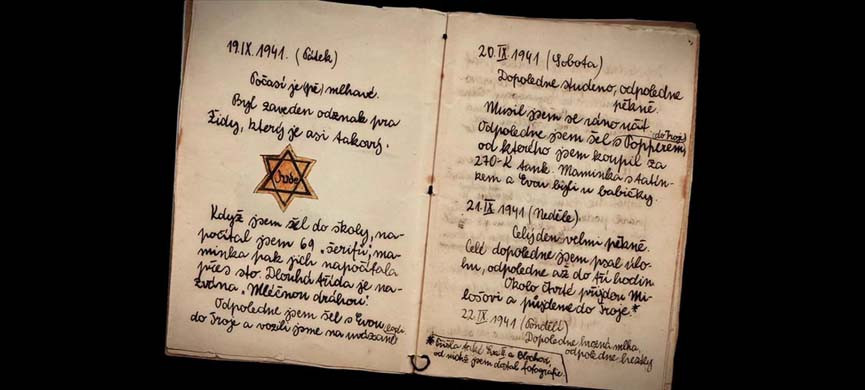 19.IX.1941. (Pátek)
Počasí je (pě) mlhavé.
Byl zaveden odznak pro
Židy, který je asi takový.
Jude
Když jsem šel do školy, na-
počítal jsem 69 „šerifů“, ma-
minka pak jich napočítala
přes sto. Dlouhá třída je na-
zvána „Mléčnou dráhou“.
Odpoledne jsem šel s Evou
do Troje a vozili jsme na
20.IX.1941 (Sobota)
Dopoledne studeno, odpoledne
pěkně.
Musil jsem se ráno
Odpoledne jsem šel s Popperem, (do Troje)
od kterého jsem koupil za
270-K tank. Maminka s tatín-
kem a Evou byli u babičky.
21.IX 1941 (Neděle)
Celý den velmi pěkně.
Celé dopoledne jsem psal úlo-
hu, odpoledne až do tří hodin.
Okolo čtvrté přijdou Mi-
lošovi a půjdeme do Troje.*
22.IX 1941 (Pondělí)
Dopoledne hrozná mlha,
odpoledne hezky
* tatíč a
od nichž jsem dostal fotografie.